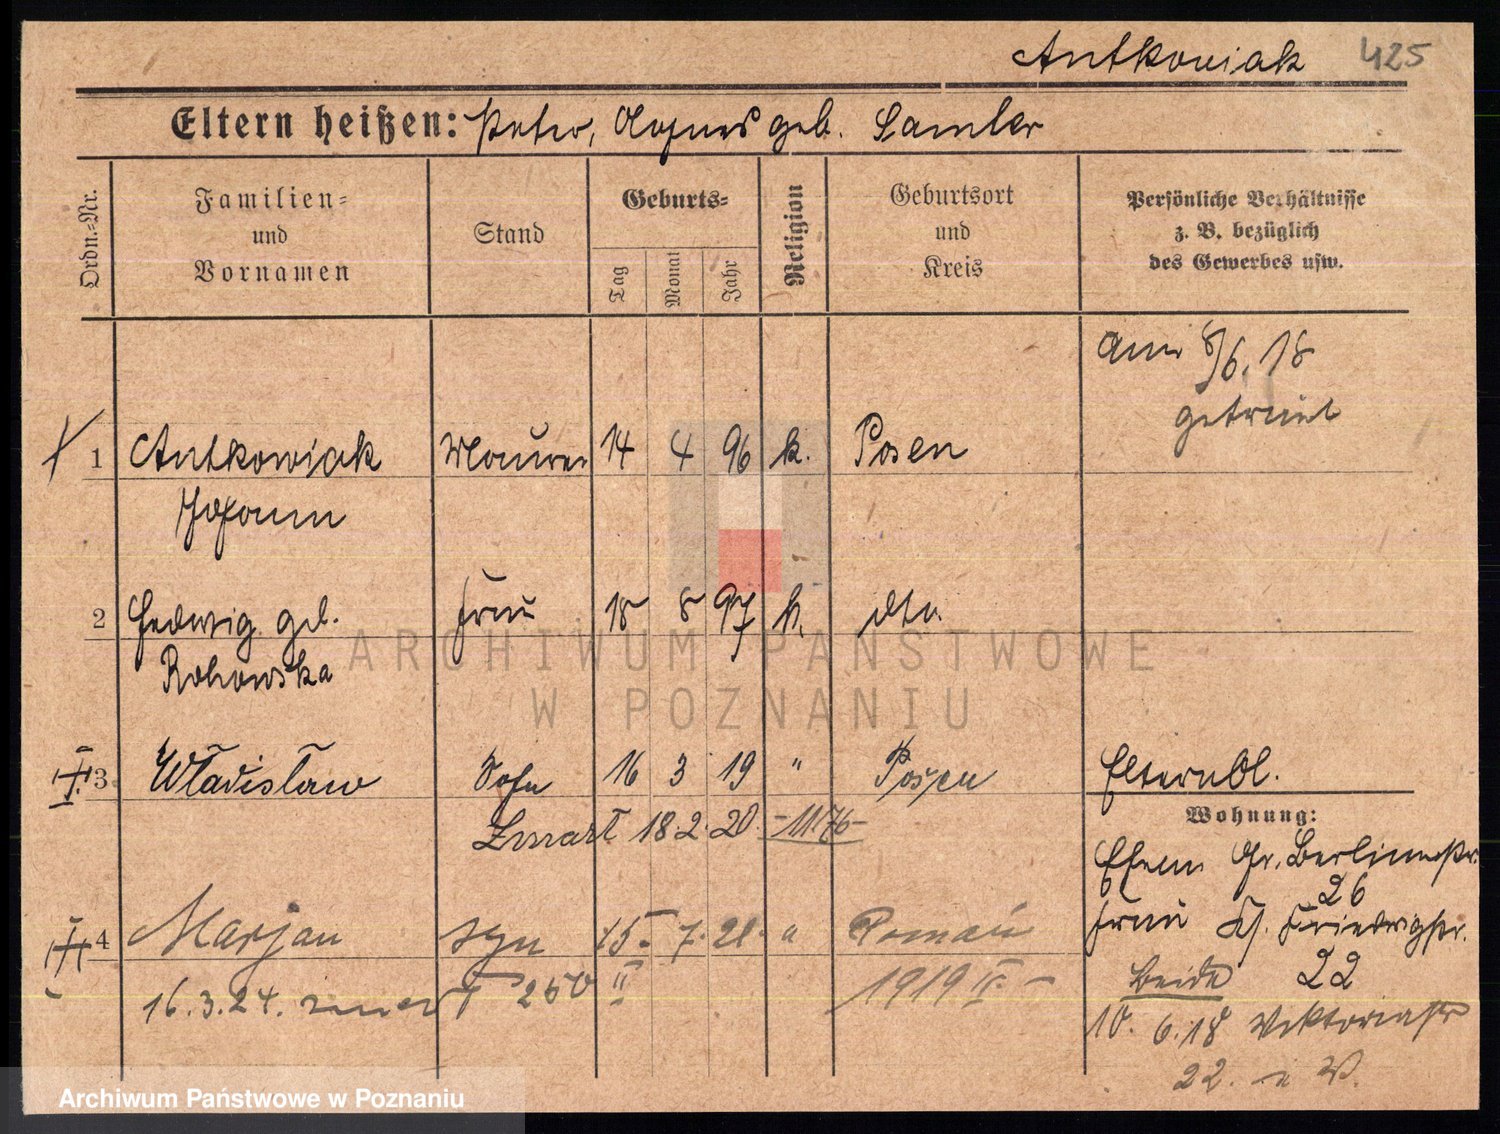 Antkowiak 425
Eltern heißen: Peter, Agnes geb. Samler
Ordn.-Nr.
Familien-
und
Vornamen
Stand
Geburts-
Tag
Monat
Jahr
Religion
Geburtsort
und
Kreis
Persönliche Verhältnisse
z. B. bezüglich
des Gewerbes usw.
am 8/6. 18
getraut
1 Antkowiak Maurer 14 4 96 k. Posen
Johann
2 Hedwig geb. Frau 18 8 97 k. dto.
Rohowska
3 Władisław Sohn 16 3 19 " Posen
Elternbl.
Zmarł 18 2. 20.
Wohnung:
Ehem. Gr. Berlinerstr.
26
Frau Kl. Friedrichstr.
22
beide
4 Marjan syn 15 7. 21. " Poznań
16.3.24. zmarł
1919
10. 6.18 Viktoriastr
22. i W.
ARCHIWUM PAŃSTWOWE
W POZNANIU
Archiwum Państwowe w Poznaniu